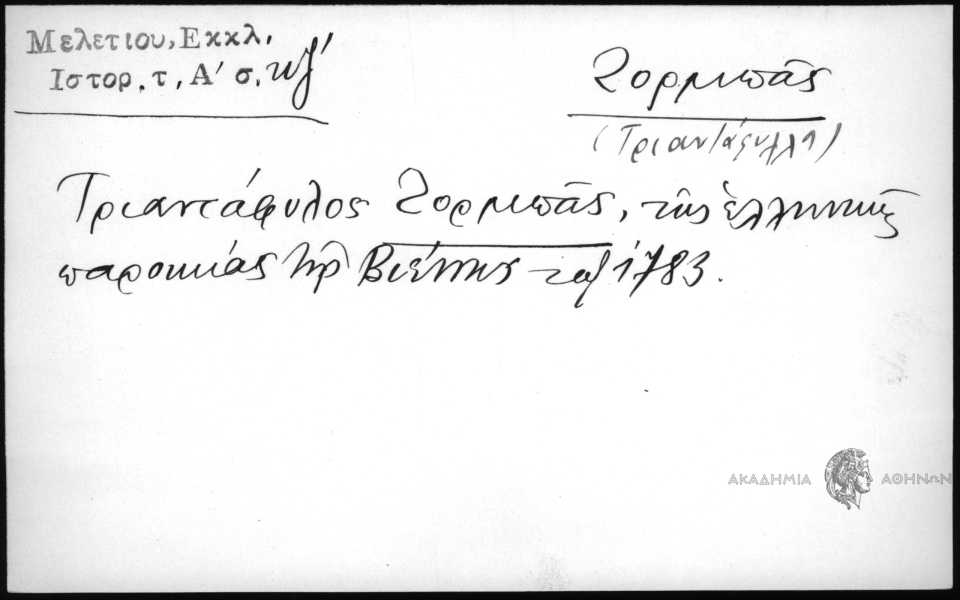 Μελετιου, Εκκλ.
Ιστορ. τ, Α' σ, κζ'
Ζορμπᾶς
(Τριαντάφυλλη)
Τριαντάφυλος Ζορμπᾶς, τῆς ἑλληνικῆς
παροικίας τῆς Βιέννης τοῦ 1783.
ΑΚΑΔΗΜΙΑ ΑΘΗΝΩΝ